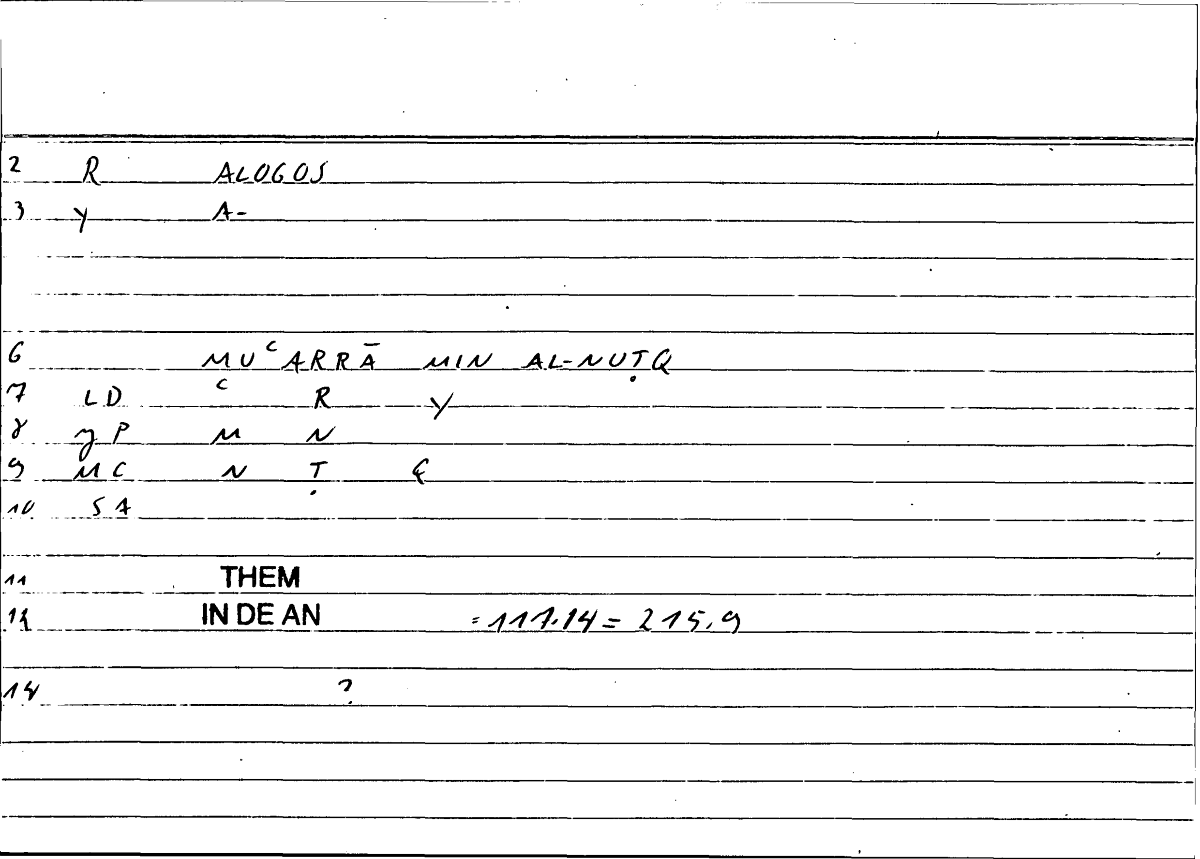 2 R ALOGOS
3 y A-
6 MUᶜARRĀ MIN AL-NUṬQ
7 LD ᶜ R Y
8 yP M N
9 MC N Ṭ Q
10 SA
11 THEM
12 IN DE AN =111.14= 215.9
14 ?